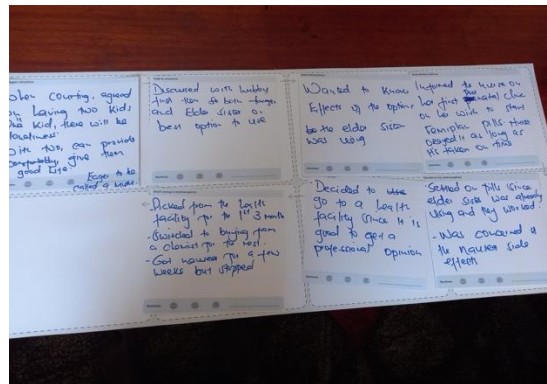 When courting, agreed
on having two kids
One kid, there will be
loneliness.
With two, can provide
comfortably give them
good life.
Eager to be
called a mother
Discussed with hubby
and Elder sister on
best option to use
Wanted to know
Effects of the options
the elder sister
was using
Informed the nurse on
her first Postnatal clinic
on her wish to start
Femiplan pills. These
okayed it as long as
it's taken on time
- Picked from the health
facility for the 1st 3 months
- Switched to buying from
a chemist for the rest.
- Got nausea for a few
weeks but stopped
Decided to use
go to a health
facility since it is
good to get a
professional opinion
Settled on pills since
elder sister was already
using and they worked.
- Was concerned of
the nausea side
effects